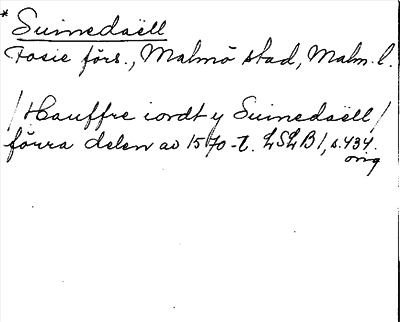 * Suinedaëll
Fosie förs., Malmö stad, Malm. l.
/Hauffre iordt y Suinedaëll/
förra delen av 1570-t. LSLB1, s. 434.
orig